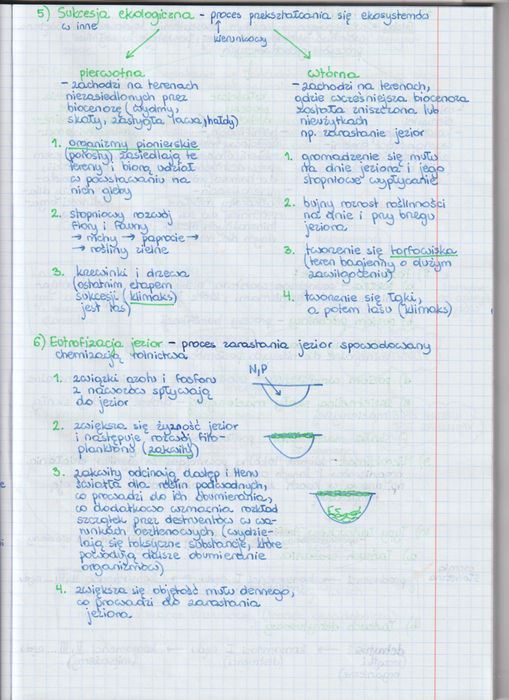 5) Sukcesja ekologiczna - proces przekształcania się ekosystemów
w inne
kierunkowy
pierwotna
- zachodzi na terenach
niezasiedlonych przez
biocenozę (wydmy,
skały, zastygła lawa, hałdy)
1. organizmy pionierskie
(porosty) zasiedlają te
tereny i biorą udział
w powstawaniu na
nich gleby
2. stopniowy rozwój
flory i fauny
→ mchy → paprocie →
→ rośliny zielne
3. krzewinki i drzewa
(ostatnim etapem
sukcesji (klimaks)
jest las)
wtórna
- zachodzi na terenach,
gdzie wcześniejsza biocenoza
została zniszczona lub
nieużytkach
np. zarastanie jezior
1. gromadzenie się mułu
na dnie jeziora i jego
stopniowe wypłycanie
2. bujny rozrost roślinności
na dnie i przy brzegu
jeziora
3. tworzenie się torfowiska
(teren bagienny o dużym
zawilgoceniu)
4. tworzenie się łąki,
a potem lasu (klimaks)
6) Eutrofizacja jezior - proces zarastania jezior spowodowany
chemizacją rolnictwa
1. związki azotu i fosforu
z nawozów spływają
do jezior
N,P
2. zwiększa się żyzność jezior
i następuje rozwój fito-
planktonu (zakwity)
3. zakwity odcinają dostęp i tlenu
światła dla roślin podwodnych,
co prowadzi do ich obumierania,
co dodatkowo wzmacnia rozkład
szczątek przez destruentów w wa-
runkach beztlenowych (wydzie-
lają się toksyczne substancje, które
powodują dalsze obumieranie
organizmów)
4. zwiększa się objętość mułu dennego,
co prowadzi do zarastania
jeziora